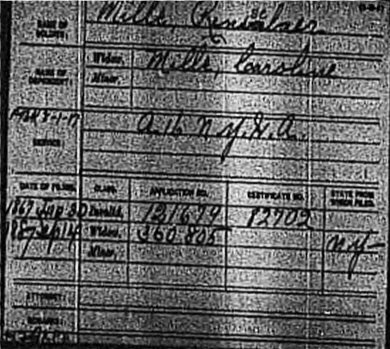 NAME OF SOLDIER: Mills, Rensselaer
NAME OF DEPENDENT: Widow, Mills, Caroline
Minor,
SERVICE: A. 16 N.Y. H.A.
DATE OF FILING. CLASS. APPLICATION NO. CERTIFICATE NO. STATE FROM WHICH FILED.
1867 Invalid, 121679 82702
Widow, 360.805 N.Y.
Minor,
ATTORNEY:
REMARKS: